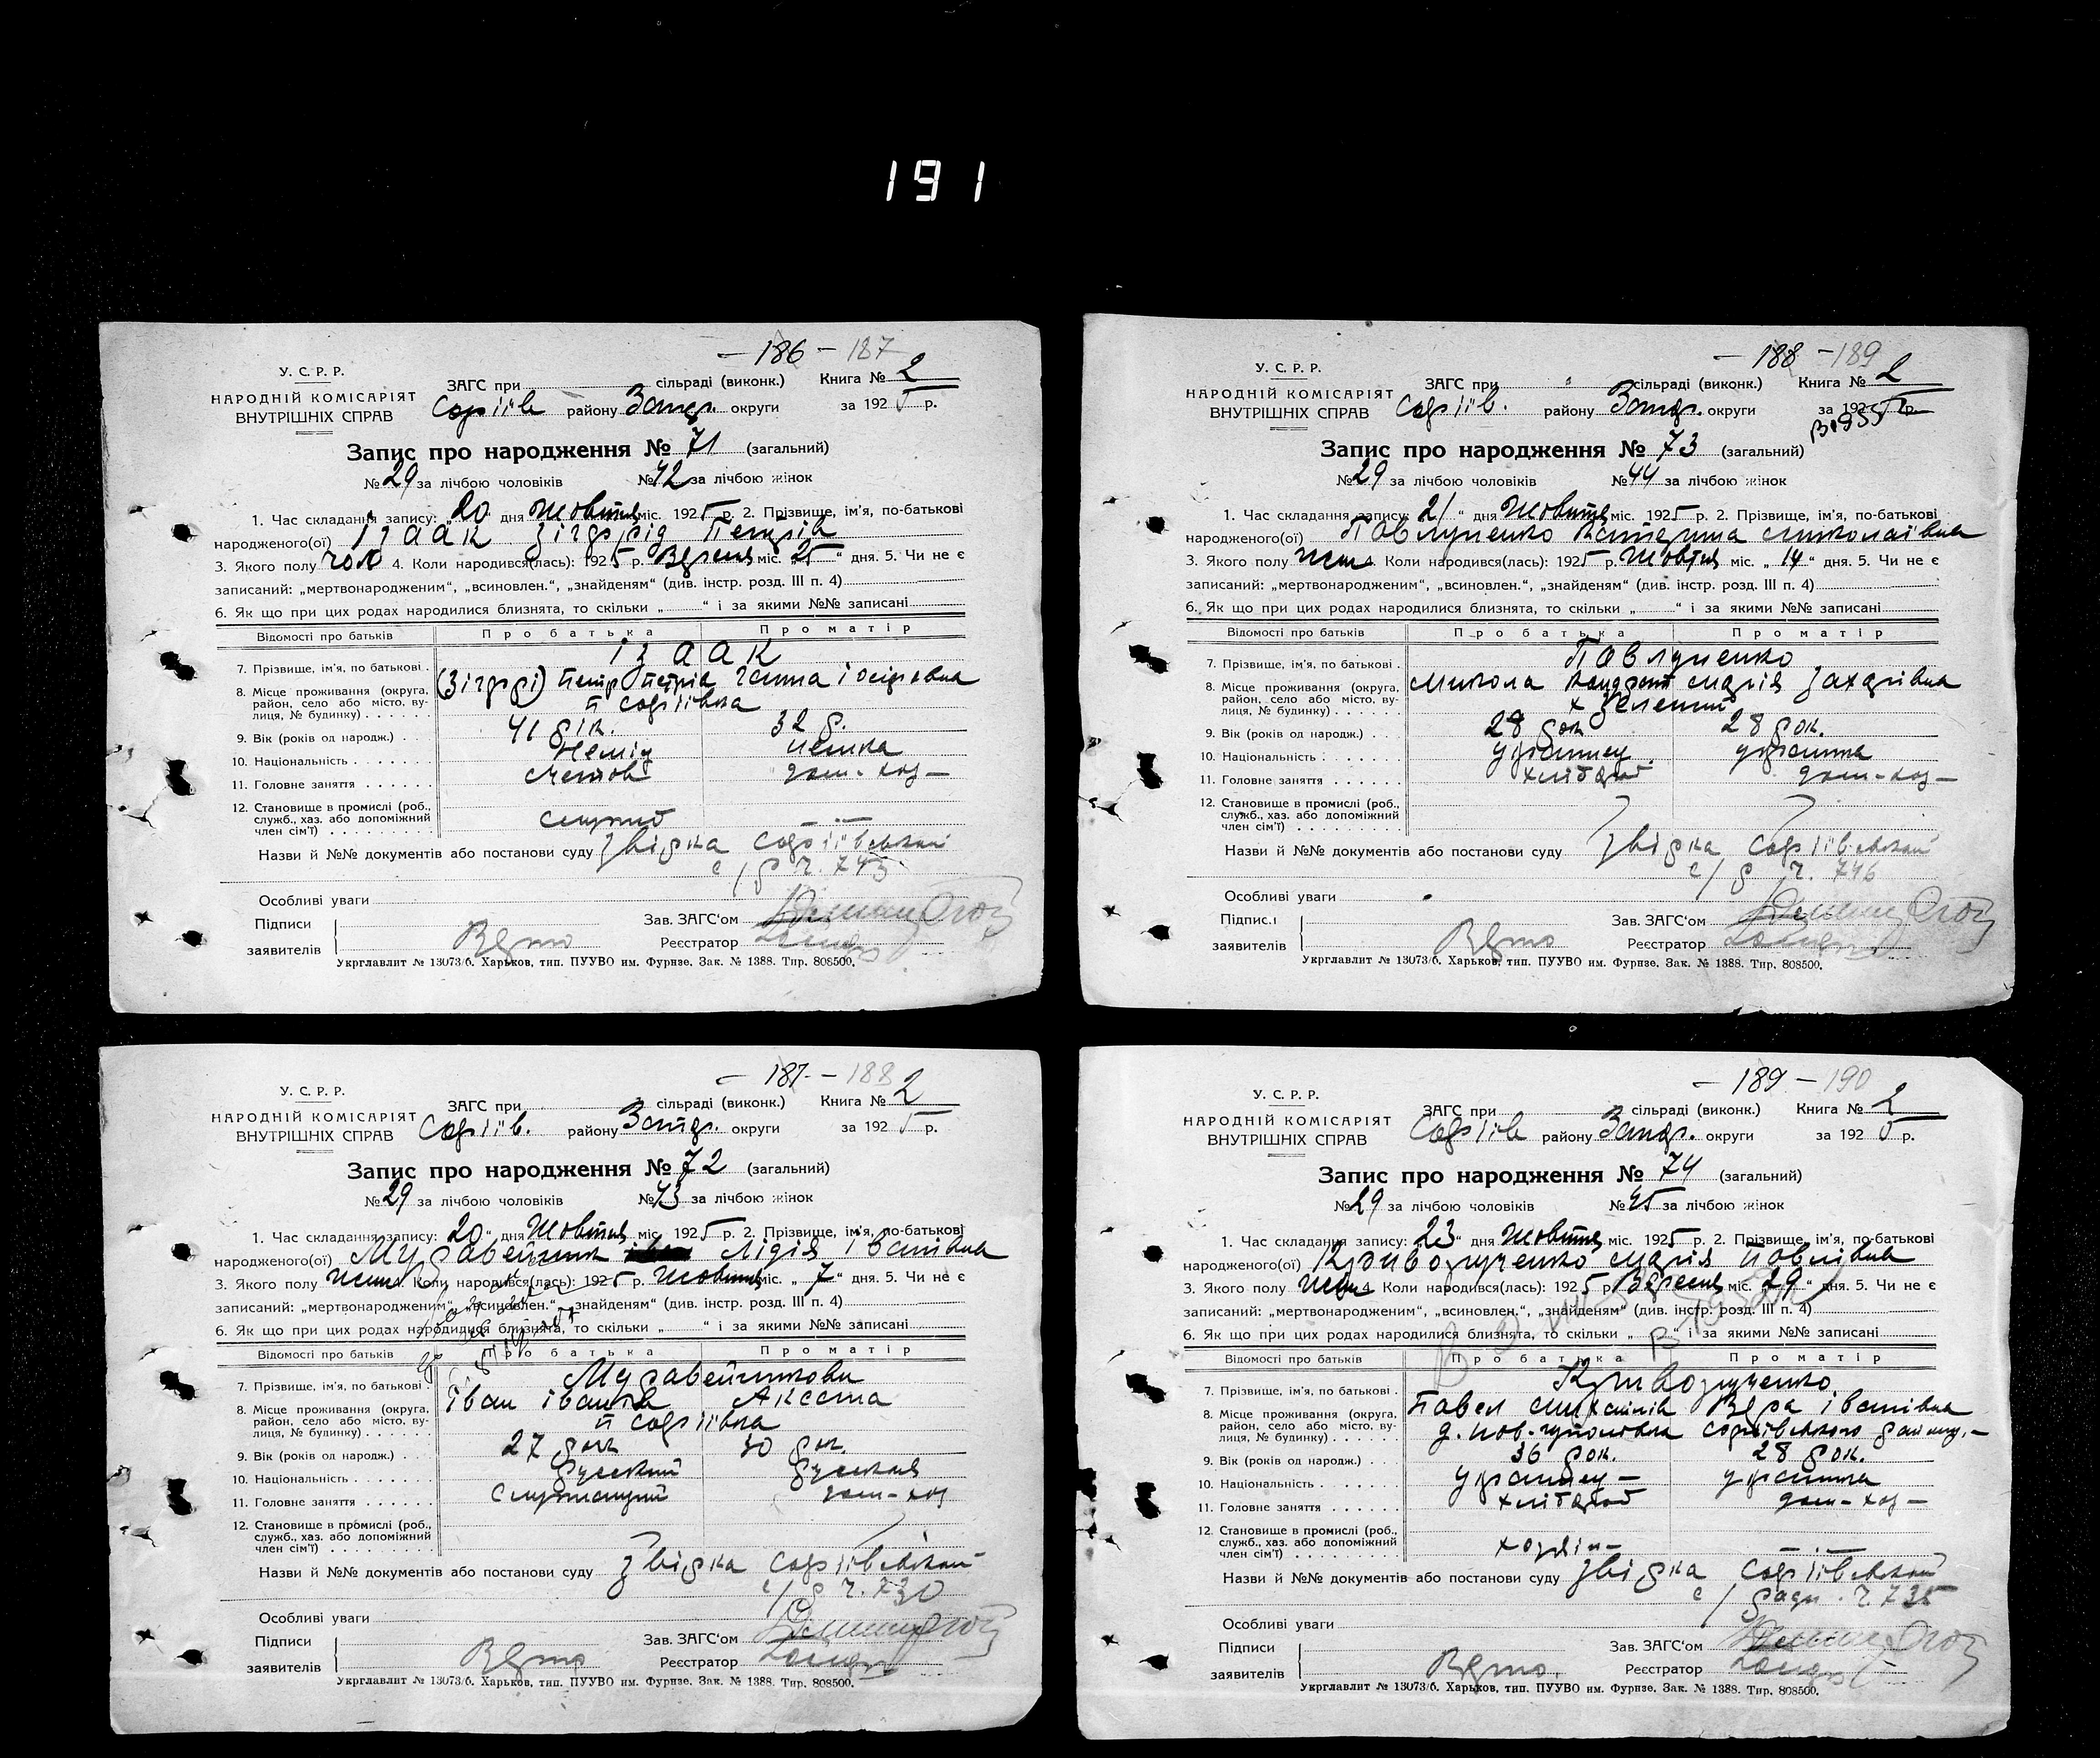 191
— 186 — 187
У. С. Р. Р.
НАРОДНІЙ КОМІСАРІЯТ
ВНУТРІШНІХ СПРАВ
ЗАГС при сільраді (виконк.) Книга № 2
Софіїв району Запор. округи за 1925 р.
Запис про народження № 71 (загальний)
№ 29 за лічбою чоловіків № 42 за лічбою жінок
1. Час складання запису: „20“ дня Жовтня міс. 1925 р. 2. Прізвище, ім'я, по-батькові
народженого(ої) Ізаак Зігфрід Петрів
3. Якого полу чол 4. Коли народився(лась): 1925 р. Вересня міс. 25“ дня. 5. Чи не є
записаний: „мертвонародженим“, „всиновлен.“, „знайденям“ (див. інстр. розд. III п. 4)
6. Як що при цих родах народилися близнята, то скільки „ “ і за якими №№ записані
Відомості про батьків Про батька Про матір
7. Прізвище, ім'я, по батькові . Ізаак
Петр Петрів Ганна
8. Місце проживання (округа, район, село або місто, ву-
лиця, № будинку) . . . . . п Софіївка
9. Вік (років од народж.) . . 41 рік. 32 р.
10. Національність . . . . . . . Немец немка
11. Головне заняття . . . . . . дом-хоз—
12. Становище в промислі (роб.,
служб., хаз. або допоміжний
член сім'ї) . . . . . . . . .
Назви й №№ документів або постанови суду Звірка Софіївської
с/р ч. 743
Особливі уваги
Підписи Зав. ЗАГС'ом
заявителів Реєстратор
Укрглавлит № 13073/б. Харьков, тип. ПУУВО им. Фурнзе. Зак. № 1388. Тир. 808500.
— 188 — 189
У. С. Р. Р.
НАРОДНІЙ КОМІСАРІЯТ
ВНУТРІШНІХ СПРАВ
ЗАГС при сільраді (виконк.) Книга № 2
Софіїв. району Запор. округи за 1925 р.
Запис про народження № 73 (загальний)
№ 29 за лічбою чоловіків № 44 за лічбою жінок
1. Час складання запису: 21“ дня Жовтня міс. 1925 р. 2. Прізвище, ім'я, по-батькові
народженого(ої) Павлученко Катерина Миколаївна
3. Якого полу жін 4. Коли народився(лась): 1925 р. Жовтня міс. „14“ дня. 5. Чи не є
записаний: „мертвонародженим“, „всиновлен.“, „знайденям“ (див. інстр. розд. III п. 4)
6. Як що при цих родах народилися близнята, то скільки „ “ і за якими №№ записані
Відомості про батьків Про батька Про матір
7. Прізвище, ім'я, по батькові . Павлученко
Микола Кондрат Марія Захарівна
8. Місце проживання (округа, район, село або місто, ву-
лиця, № будинку) . . . . . х Зелений
9. Вік (років од народж.) . . . 28 рок 28 рок.
10. Національність . . . . . . . українец українка
11. Головне заняття . . . . . . хлібороб дом-хоз—
12. Становище в промислі (роб.,
служб., хаз. або допоміжний
член сім'ї) . . . . . . . . .
Назви й №№ документів або постанови суду Звірка Софіївської
с/р ч. 746
Особливі уваги
Підписи Зав. ЗАГС'ом
заявителів Реєстратор
Укрглавлит № 13073/б. Харьков, тип. ПУУВО им. Фурнзе. Зак. № 1388. Тир. 808500.
— 187 — 188
У. С. Р. Р.
НАРОДНІЙ КОМІСАРІЯТ
ВНУТРІШНІХ СПРАВ
ЗАГС при сільраді (виконк.) Книга № 2
Софіїв. району Запор. округи за 1925 р.
Запис про народження № 72 (загальний)
№ 29 за лічбою чоловіків № 43 за лічбою жінок
1. Час складання запису: 20“ дня Жовтня міс. 1925 р. 2. Прізвище, ім'я, по-батькові
народженого(ої) Муравейник Лідія Іванівна
3. Якого полу жін 4. Коли народився(лась): 1925 р. Жовтня міс. „7“ дня. 5. Чи не є
записаний: „мертвонародженим“, „всиновлен.“, „знайденям“ (див. інстр. розд. III п. 4)
6. Як що при цих родах народилися близнята, то скільки „ “ і за якими №№ записані
Відомості про батьків Про батька Про матір
7. Прізвище, ім'я, по батькові .
Іван Іванів
8. Місце проживання (округа, район, село або місто, ву-
лиця, № будинку) . . . . . п Софіївка
9. Вік (років од народж.) . . 27 рок 30 рок.
10. Національність . . . . . . . русский русская
11. Головне заняття . . . . . . дом-хоз
12. Становище в промислі (роб.,
служб., хаз. або допоміжний
член сім'ї) . . . . . . . . .
Назви й №№ документів або постанови суду Звірка Софіївської
с/р ч. 730
Особливі уваги
Підписи Зав. ЗАГС'ом
заявителів Реєстратор
Укрглавлит № 13073/б. Харьков, тип. ПУУВО им. Фурнзе. Зак. № 1388. Тир. 808500.
— 189 — 190
У. С. Р. Р.
НАРОДНІЙ КОМІСАРІЯТ
ВНУТРІШНІХ СПРАВ
ЗАГС при сільраді (виконк.) Книга № 2
Софіїв району Запор. округи за 1925 р.
Запис про народження № 74 (загальний)
№ 29 за лічбою чоловіків № 45 за лічбою жінок
1. Час складання запису: 23“ дня Жовтня міс. 1925 р. 2. Прізвище, ім'я, по-батькові
народженого(ої) Криволученко Марія Павлівна
3. Якого полу жін 4. Коли народився(лась): 1925 р. Вересня міс. „29“ дня. 5. Чи не є
записаний: „мертвонародженим“, „всиновлен.“, „знайденям“ (див. інстр. розд. III п. 4)
6. Як що при цих родах народилися близнята, то скільки „ “ і за якими №№ записані
Відомості про батьків Про батька Про матір
7. Прізвище, ім'я, по батькові . Криволученко
Павел Михайлів Вера Іванівна
8. Місце проживання (округа, район, село або місто, ву-
лиця, № будинку) . . . . . Софіївського району.—
9. Вік (років од народж.) . . . 36 рок. 28 рок.
10. Національність . . . . . . . українец— українка
11. Головне заняття . . . . . . хлібороб дом-хоз—
12. Становище в промислі (роб.,
служб., хаз. або допоміжний
член сім'ї) . . . . . . . . . хозяін—
Назви й №№ документів або постанови суду Звірка Софіївської
с/ради. ч. 735
Особливі уваги
Підписи Зав. ЗАГС'ом
заявителів Реєстратор
Укрглавлит № 13073/б. Харьков, тип. ПУУВО им. Фурнзе. Зак. № 1388. Тир. 808500.